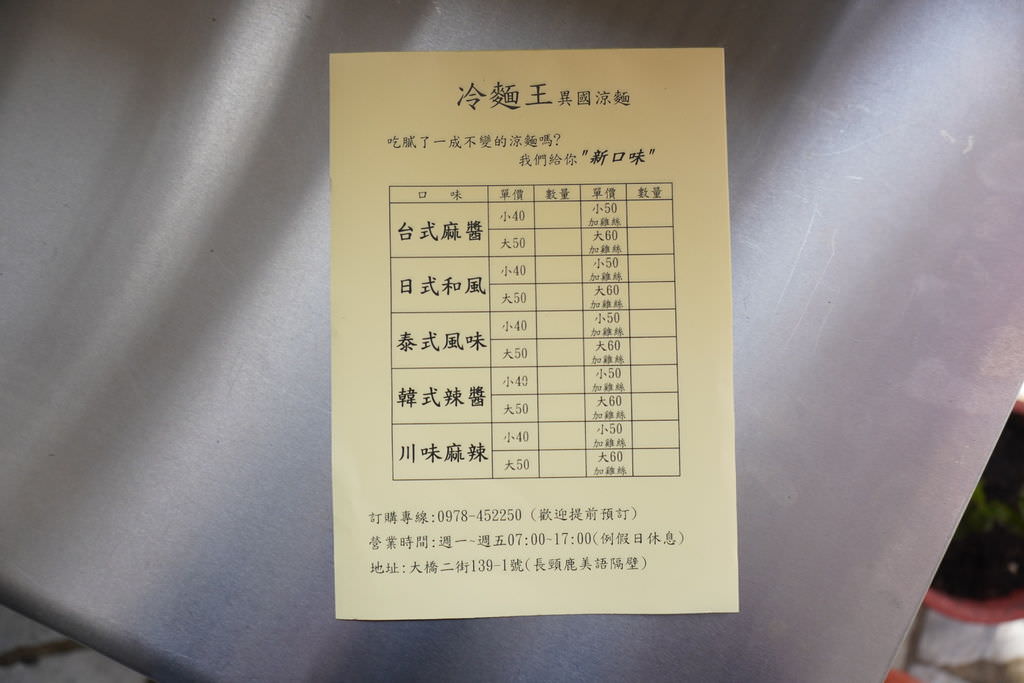 冷麵王異國涼麵
吃膩了一成不變的涼麵嗎?
我們給你"新口味"
口 味 單價 數量 單價 數量
台式麻醬 小40 小50 加雞絲
大50 大60 加雞絲
日式和風 小40 小50 加雞絲
大50 大60 加雞絲
泰式風味 小40 小50 加雞絲
大50 大60 加雞絲
韓式辣醬 小40 小50 加雞絲
大50 大60 加雞絲
川味麻辣 小40 小50 加雞絲
大50 大60 加雞絲
訂購專線:0978-452250 (歡迎提前預訂)
營業時間:週一~週五07:00~17:00(例假日休息)
地址:大橋二街139-1號(長頸鹿美語隔壁)